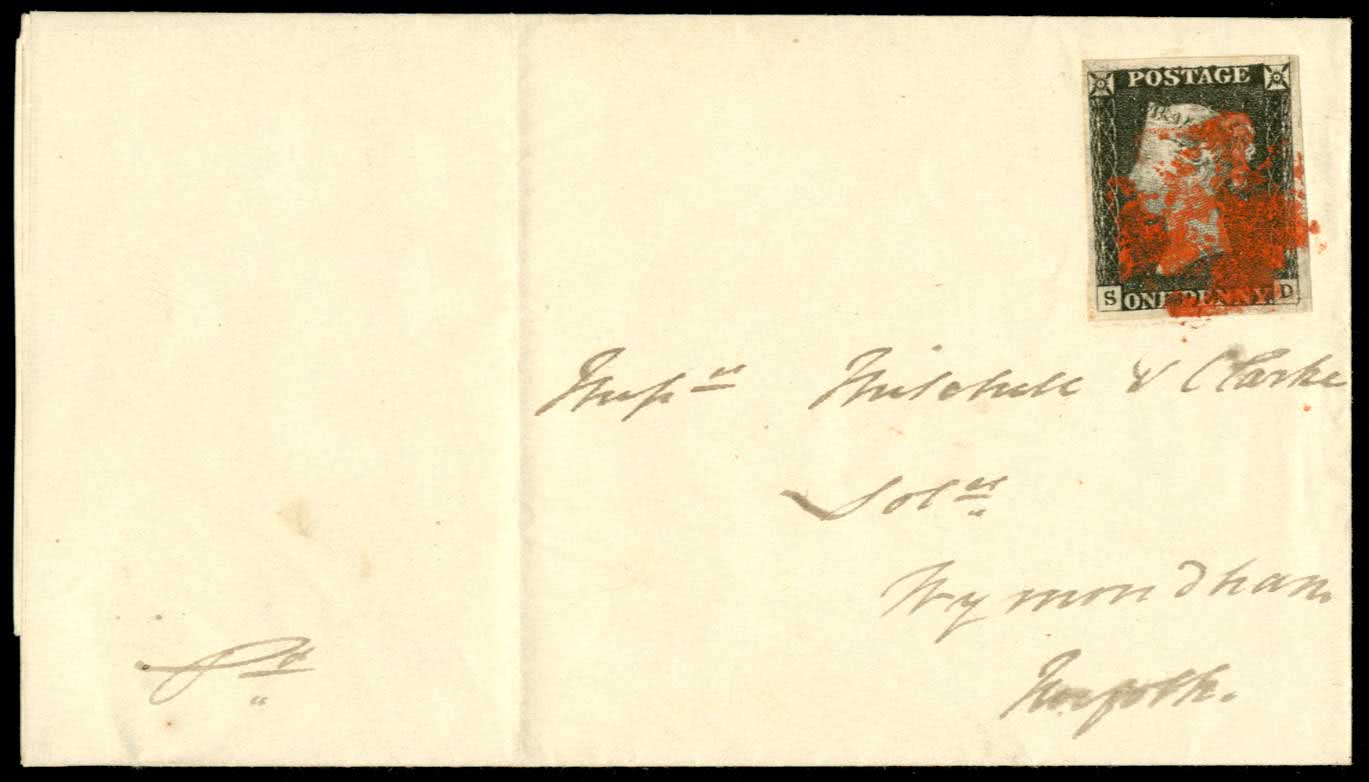 POSTAGE
S ONE PENNY. D
Messrs Mitchell & Clarke
Solrs
Wymondham
Norfolk.
Pd